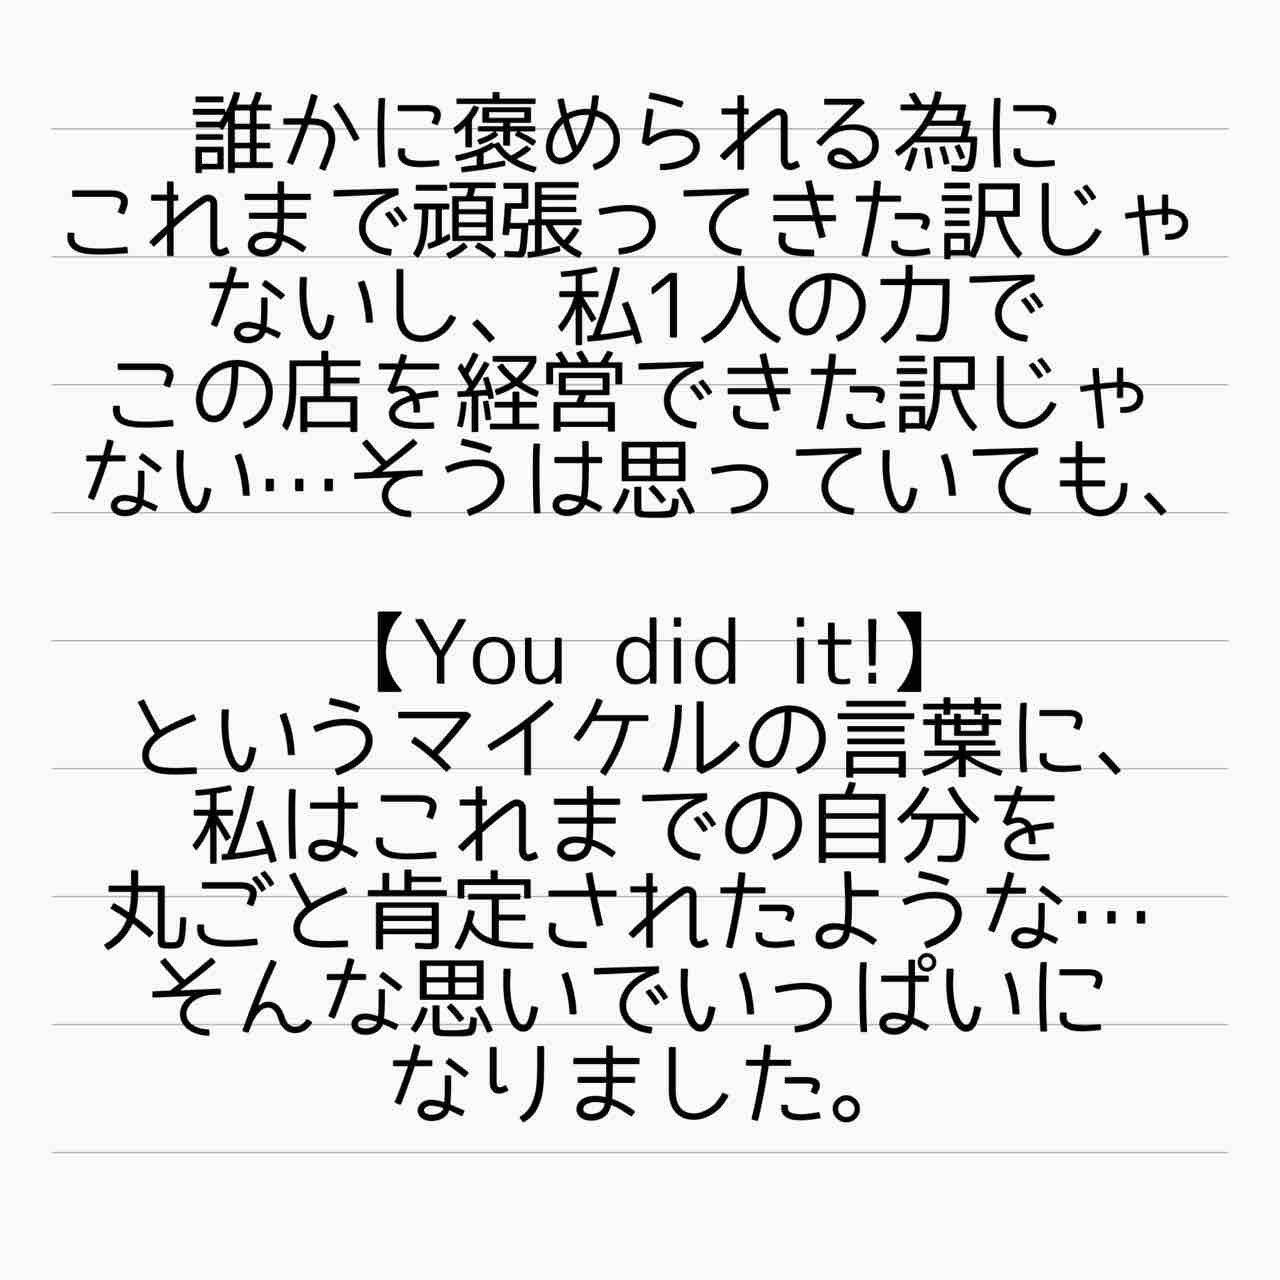 誰かに褒められる為に
これまで頑張ってきた訳じゃ
ないし、私1人の力で
この店を経営できた訳じゃ
ない…そうは思っていても、
【You did it!】
というマイケルの言葉に、
私はこれまでの自分を
丸ごと肯定されたような…
そんな思いでいっぱいに
なりました。